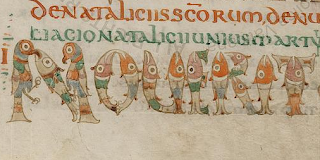 DENATALICIISSCORUM,DENU
TIACIONATALICIIUNIUSMARTY
NOUERIT